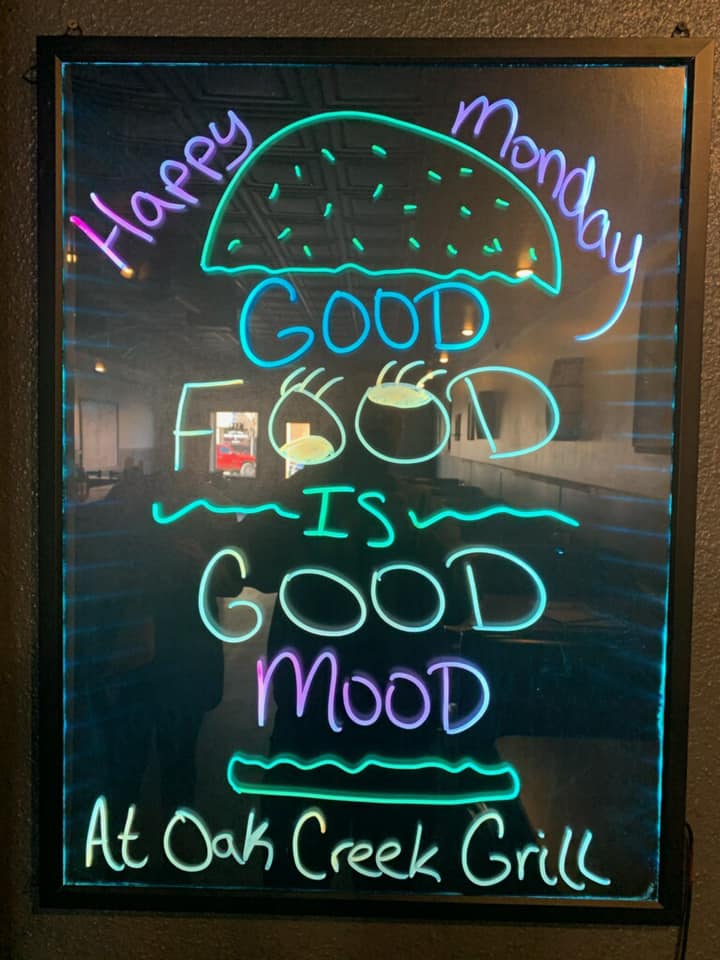 Happy Monday
GOOD
FOOD
IS
GOOD
MOOD
At Oak Creek Grill